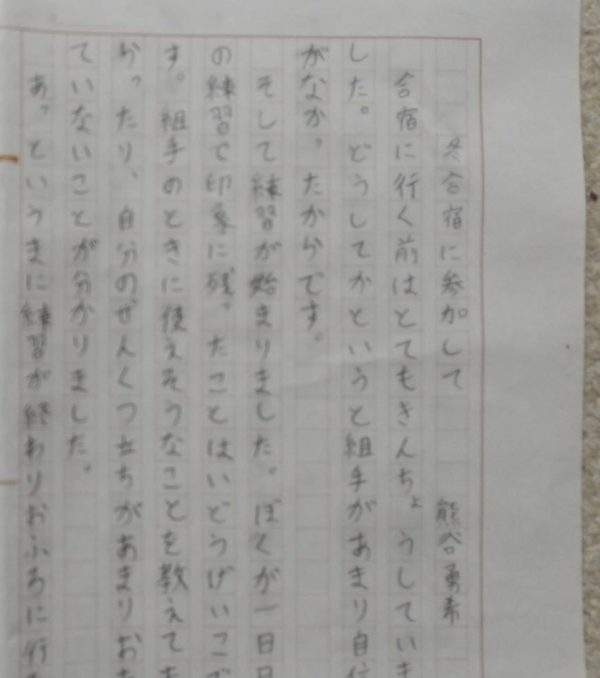 冬合宿に参加して 熊谷勇希
合宿に行く前はとてもきんちょうしていま
した。どうしてかというと組手があまり自信
がなかったからです。
そして練習が始まりました。ぼくが一日目
の練習で印象に残ったことはいどうげいこで
す。組手のときに使えそうなことを教えても
らったり、自分のぜんくつ立ちがあまりおち
ていないことが分かりました。
あっというまに練習が終わりおふろに行